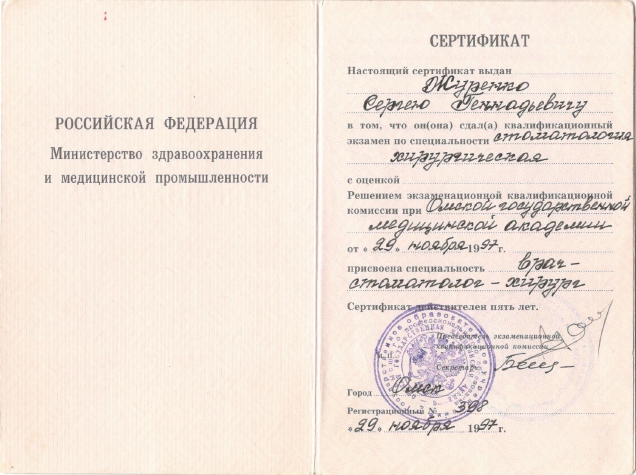 РОССИЙСКАЯ ФЕДЕРАЦИЯ
Министерство здравоохранения
и медицинской промышленности
СЕРТИФИКАТ
Настоящий сертификат выдан
Журенко
Сергею Геннадьевичу
в том, что он(она) сдал(а) квалификационный
экзамен по специальности стоматология
хирургическая
с оценкой
Решением экзаменационной квалификационной
комиссии при Омской государственной
медицинской академии
от «29» ноября 1997 г.
присвоена специальность врач-
стоматолог-хирург
Сертификат действителен пять лет.
Председатель экзаменационной
квалификационной комиссии
М.П.
Секретарь
Город Омск
Регистрационный № 398
«29» ноября 1997 г.